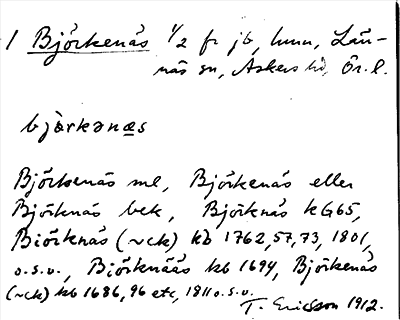 1 Björkenäs 1/2 fr jb, hmn, Län-
näs sn, Askers hd, Ör. l.
bjö̀rkənæs
Björkenäs ml, Björkenäs eller
Björknäs bek, Björknäs kG65,
Biörknäs (~ck) kb 1762,57,73, 1801,
o.s.v., Biörknääs kb 1694, Björkenäs
(~ck) kb 1686, 96 etc, 1811 o.s.v.
T. Ericsson 1912.